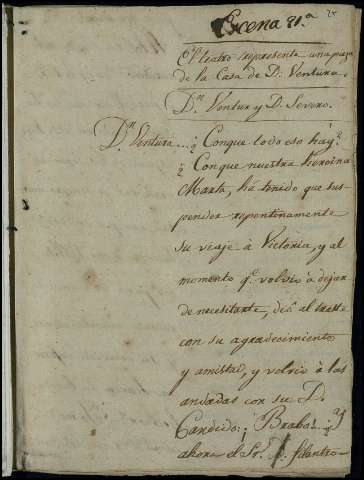 Escena 21.ª
El teatro representa una pieza
de la Casa de D.ⁿ Ventura.
D.ⁿ Ventur y D.ⁿ Severo.
D.ⁿ Ventura... ¿ Conque todo eso hay?
¿ Conque nuestra heroina
Marta, há tenido que sus-
pender repentinamente
su viaje á Victoria, y al
momento q.ᵉ volvió á dejar
de necesitarte, dió al traste
con su agradecimiento
y amistad, y volvió á las
andadas con su D.
Candido? ¡ Brabo! ¿ Y
ahora el Sr. D. filantro-